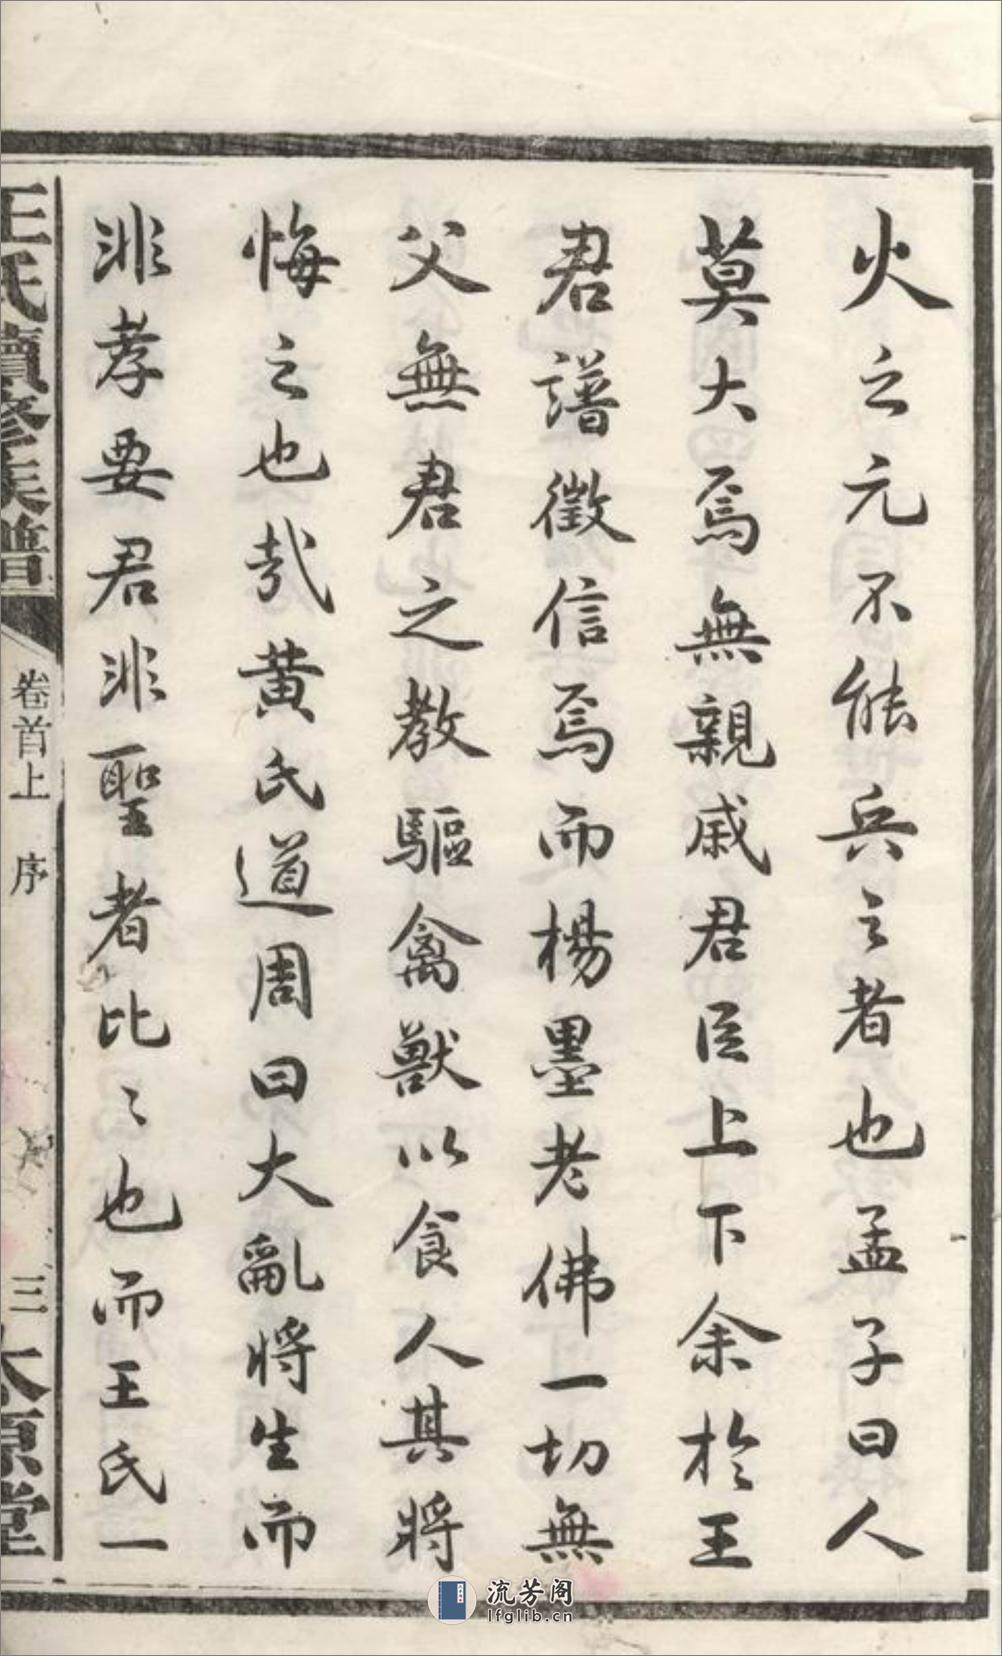 火之元不能兵之者也孟子曰人
莫大焉無親戚君臣上下余於王
君譜徵信焉而楊墨老佛一切無
父無君之教驅禽獸以食人其將
悔之也哉黃氏道周曰大亂將生而
非孝要君非聖者比〻也而王氏一
王氏續修族譜
卷首上 序
三
太原堂
流芳阁
lfglib.cn